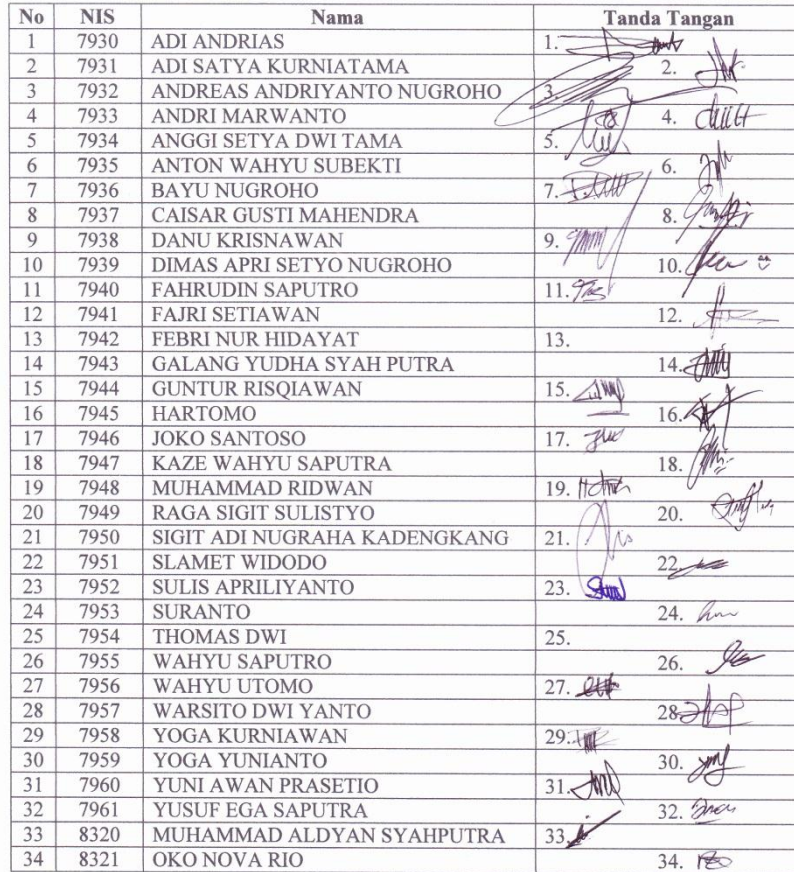 No NIS Nama Tanda Tangan
1 7930 ADI ANDRIAS 1.
2 7931 ADI SATYA KURNIATAMA 2.
3 7932 ANDREAS ANDRIYANTO NUGROHO 3.
4 7933 ANDRI MARWANTO 4.
5 7934 ANGGI SETYA DWI TAMA 5.
6 7935 ANTON WAHYU SUBEKTI 6.
7 7936 BAYU NUGROHO 7.
8 7937 CAISAR GUSTI MAHENDRA 8.
9 7938 DANU KRISNAWAN 9.
10 7939 DIMAS APRI SETYO NUGROHO 10.
11 7940 FAHRUDIN SAPUTRO 11.
12 7941 FAJRI SETIAWAN 12.
13 7942 FEBRI NUR HIDAYAT 13.
14 7943 GALANG YUDHA SYAH PUTRA 14.
15 7944 GUNTUR RISQIAWAN 15.
16 7945 HARTOMO 16.
17 7946 JOKO SANTOSO 17.
18 7947 KAZE WAHYU SAPUTRA 18.
19 7948 MUHAMMAD RIDWAN 19.
20 7949 RAGA SIGIT SULISTYO 20.
21 7950 SIGIT ADI NUGRAHA KADENGKANG 21.
22 7951 SLAMET WIDODO 22.
23 7952 SULIS APRILIYANTO 23.
24 7953 SURANTO 24.
25 7954 THOMAS DWI 25.
26 7955 WAHYU SAPUTRO 26.
27 7956 WAHYU UTOMO 27.
28 7957 WARSITO DWI YANTO 28.
29 7958 YOGA KURNIAWAN 29.
30 7959 YOGA YUNIANTO 30.
31 7960 YUNI AWAN PRASETIO 31.
32 7961 YUSUF EGA SAPUTRA 32.
33 8320 MUHAMMAD ALDYAN SYAHPUTRA 33.
34 8321 OKO NOVA RIO 34.